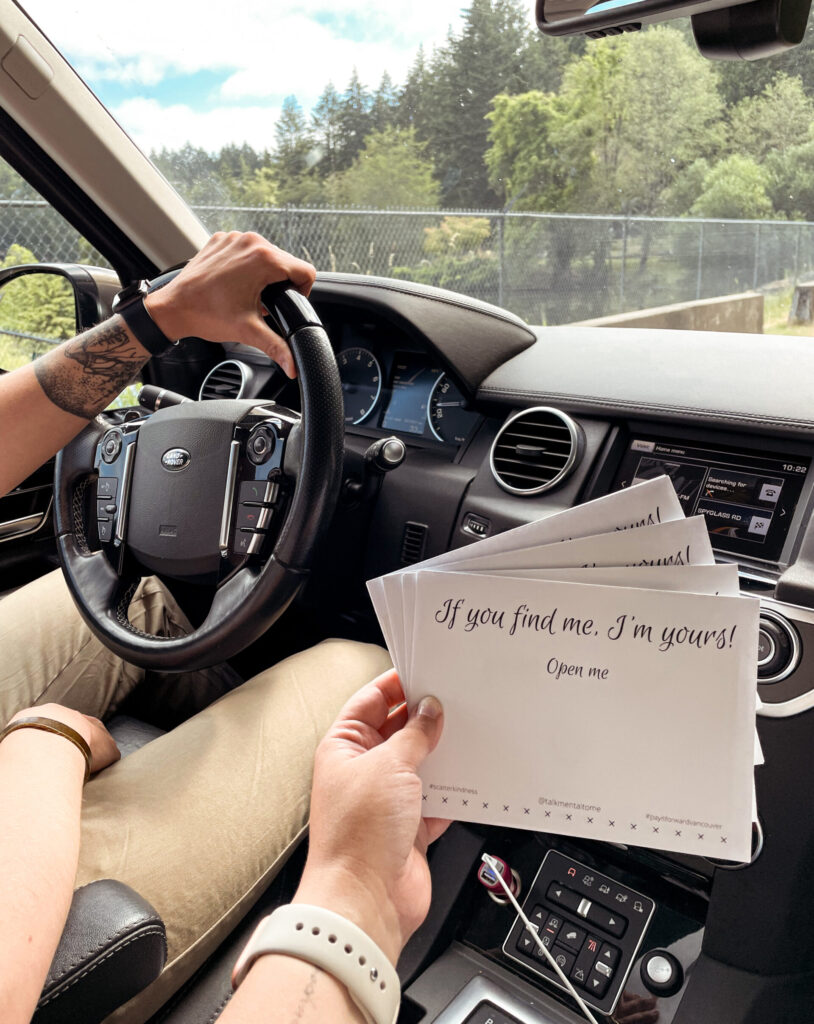 Home menu
10:22
Searching for
devices...
SPYGLASS RD
LAND
ROVER
yours!
yours!
yours!
If you find me, I'm yours!
Open me
#scatterkindness
@talkmentaltome
#payitforwardvancouver